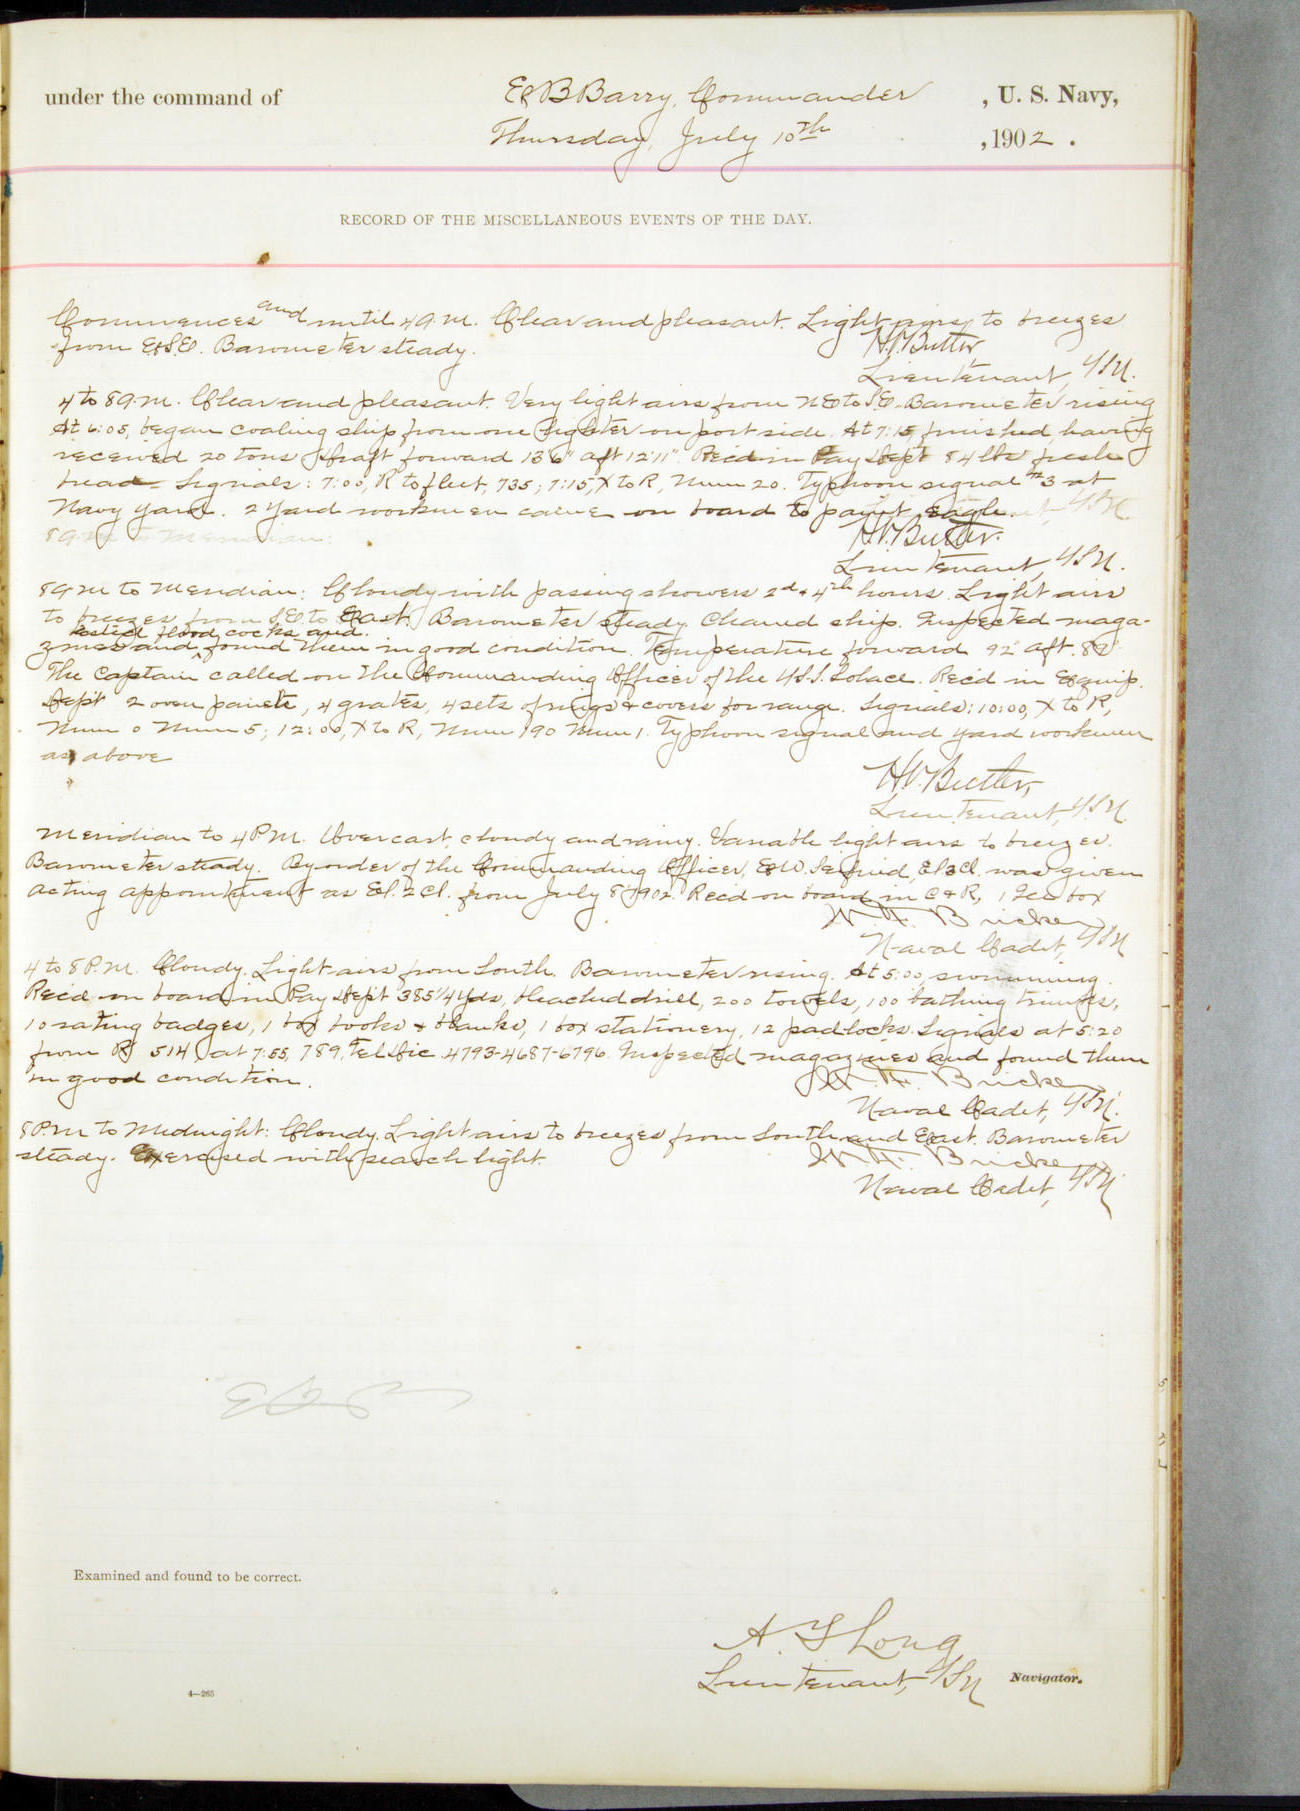 under the command of E B Barry, Commander , U. S. Navy,
Thursday, July 10th , 1902 .
RECORD OF THE MISCELLANEOUS EVENTS OF THE DAY.
Commences and until 4 a.m. Clear and pleasant. Light airs to breezes
from E & S.E. Barometer steady.
H.V. Butler
Lieutenant, USN.
4 to 8 a.m. Clear and pleasant. Very light airs from NE to S.E. Barometer rising
At 6:05, began coaling ship from one lighter on port side. At 7:15, finished, having
received 20 tons draft forward 13'6" aft 12'11". Rec'd in Pay Dept 84 lbs fresh
bread Signals: 7:00, R to fleet, 735; 7:15, X to R, Num 20. Typhoon signal #3 at
Navy Yard. 2 Yard workmen came on board to paint eagle.
H.V. Butler.
8 a.m. to Meridian:
Lieutenant USN.
8 a.m. to Meridian: Cloudy with passing showers 2d & 4th hours. Light airs
to breezes from S.E. to East. Barometer steady. Cleaned ship. Inspected maga-
tested flood cocks and
zines and found them in good condition. Temperature forward 92° aft. 89°
The Captain called on the Commanding Officer of the U.S.S. Solace. Rec'd in Equip.
Dept 2 oven , 4 grates, 4 sets of rings & covers for range. Signals: 10:00, X to R,
Num 0 Num 5; 12:00, X to R, Num 190 Num 1. Typhoon signal and yard workmen
as above
H.V. Butler,
Lieutenant, U.S.N.
Meridian to 4 P.M. Overcast, cloudy and rainy. Variable light airs to breezes.
Barometer steady. By order of the Commanding Officer, E.W. , El. 3 Cl. was given
acting appointment as El. 2 Cl. from July 8, 1902. Rec'd on board in C & R, 1 box
W. F. Bricker
Naval Cadet, USN
4 to 8 P.M. Cloudy. Light airs from South. Barometer rising. At 5:00, swimming.
Rec'd on board in Pay Dept 385 1/4 yds, bleached drill, 200 towels, 100 bathing trunks,
10 rating badges, 1 box books & blanks, 1 box stationery, 12 padlocks. Signals at 5:20
from R 514 at 7:55, 789, Tel Dic 4793-4687-6796. Inspected magazines and found them
in good condition.
W. F. Bricker
Naval Cadet, USN.
8 P.M. to Midnight: Cloudy. Light airs to breezes from South and East. Barometer
steady. Exercised with search light.
W. F. Bricker
Naval Cadet, USN
Examined and found to be correct.
A. T. Long
Lieutenant, USN Navigator.
4—265